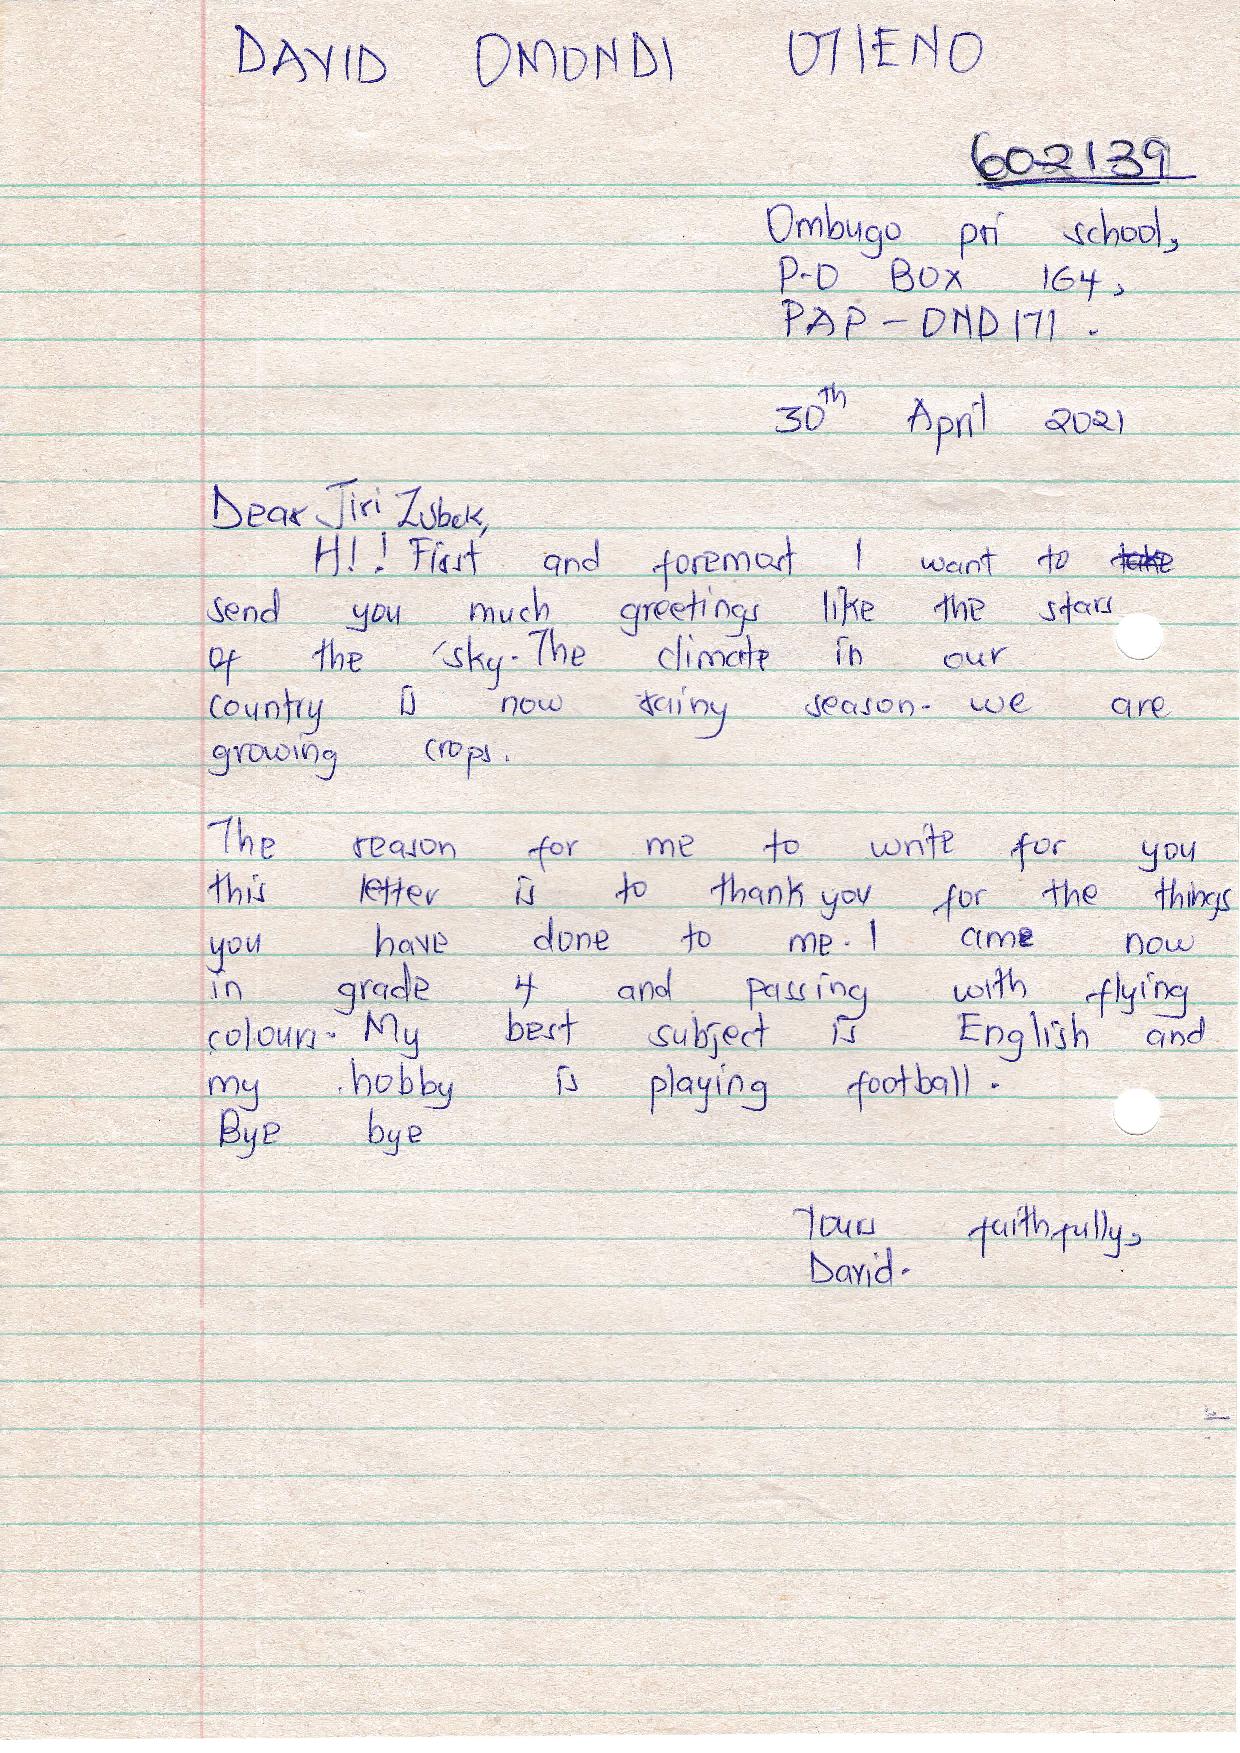 DAVID OMONDI OTIENO
602139
Ombugo pri school,
P.O BOX 164,
PAP - OND171.
30th April 2021
Dear Jiri Zubek,
HI!! First and foremost I want to take
send you much greetings like the stars
of the sky. The climate in our
country is now rainy season. we are
growing crops.
The reason for me to write for you
this letter is to thank you for the things
you have done to me. I ame now
in grade 4 and passing with flying
colours. My best subject is English and
my hobby is playing football.
Bye bye
Yours faithfully,
David.